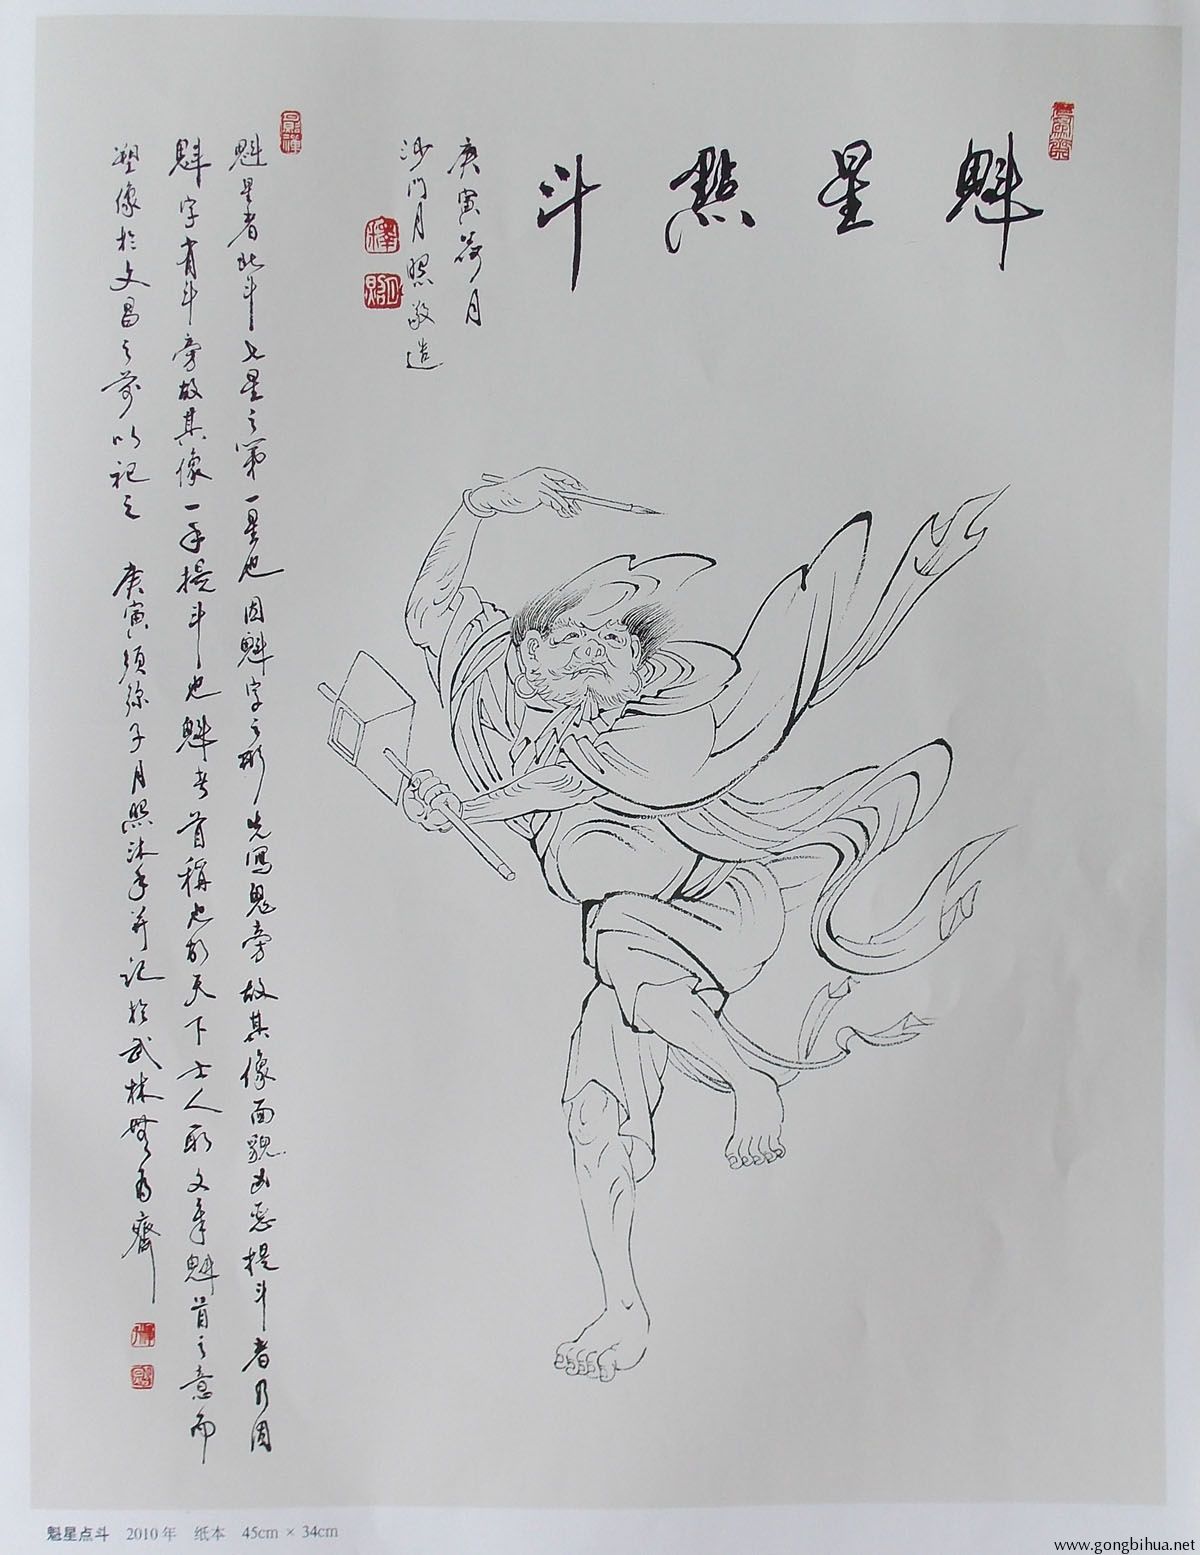 魁星點斗
庚寅荷月
沙門月照敬造
釋
月照
魁星者北斗七星之第一星也因魁字之形先寫鬼旁故其像面貌凶惡提斗者乃因
魁字有斗旁故其像一手提斗也魁者首稱也故天下士人取文章魁首之意而
塑像於文昌之前以祀之 庚寅須弥子月照沐手并記於武林無齋
魁星点斗 2010年 纸本 45cm × 34cm
www.gongbihua.net